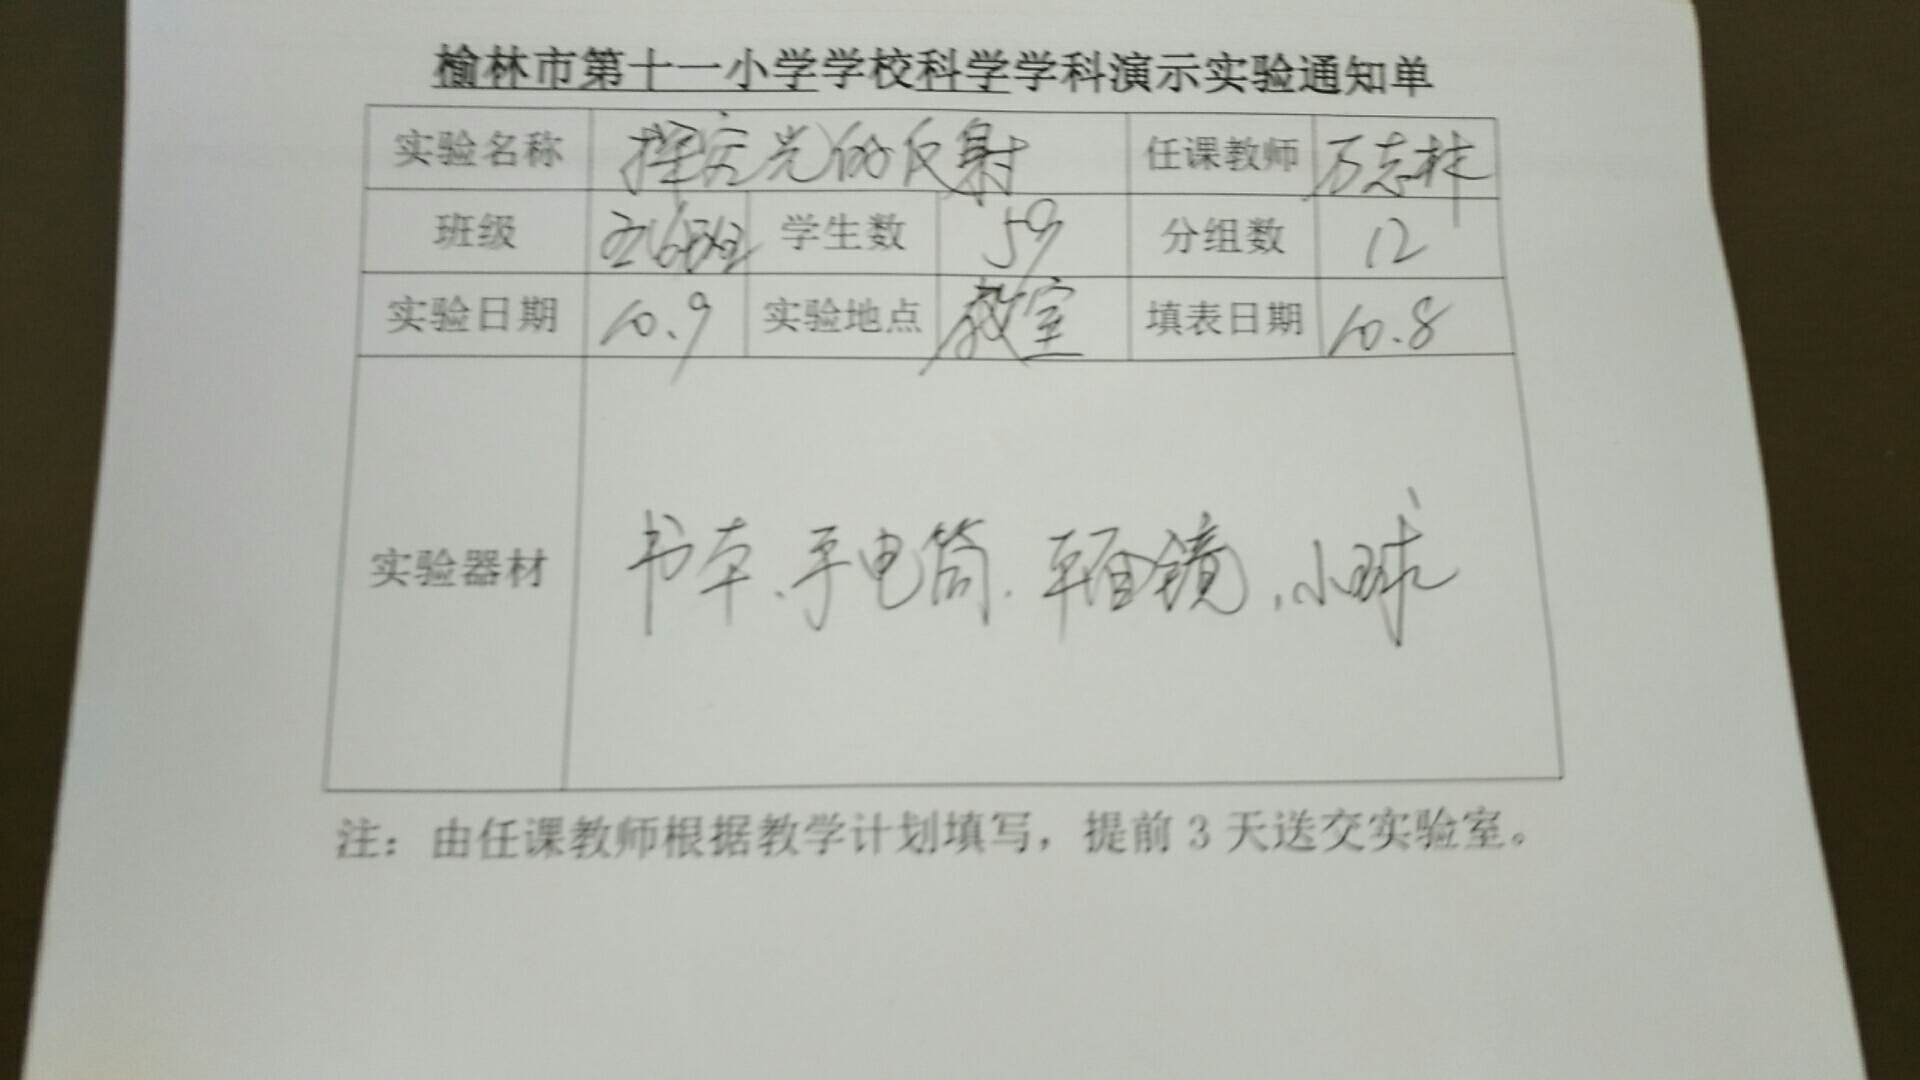 榆林市第十一小学学校科学学科演示实验通知单
实验名称 探究光的反射 任课教师 万志林
班级 五(6)班 学生数 59 分组数 12
实验日期 10.9 实验地点 教室 填表日期 10.8
实验器材 书本、手电筒、平面镜、小球
注：由任课教师根据教学计划填写，提前 3 天送交实验室。